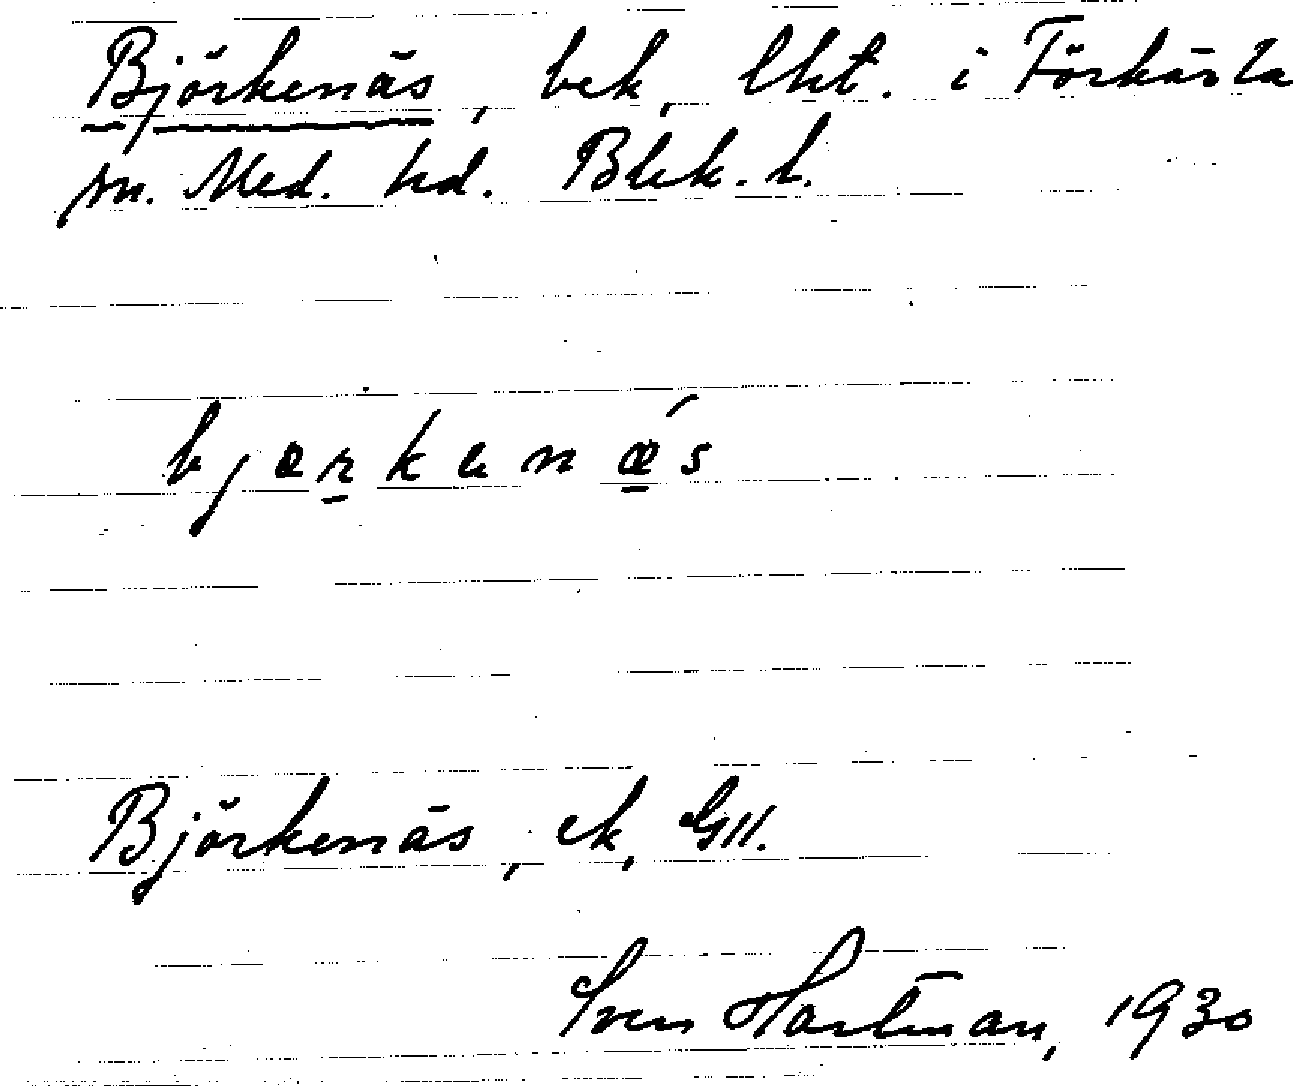 Björkenäs, bek, lht. i Förkärla
sn. Med. hd. Blek. l.
bjœrkenǽs
Björkenäs, ek, GII.
Sven Hartman, 1930